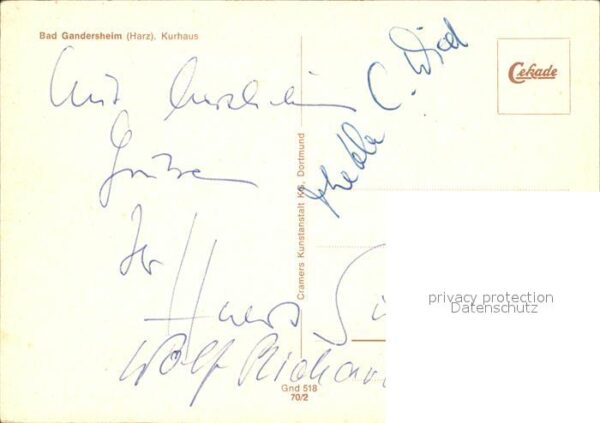 Bad Gandersheim (Harz). Kurhaus
Cekade
Mit herzlichen
Grüßen
Ihr
Hans
Wolf
Thekla C. Wied
Cramers Kunstanstalt KG, Dortmund
privacy protection
Datenschutz
Gnd 518
70/2